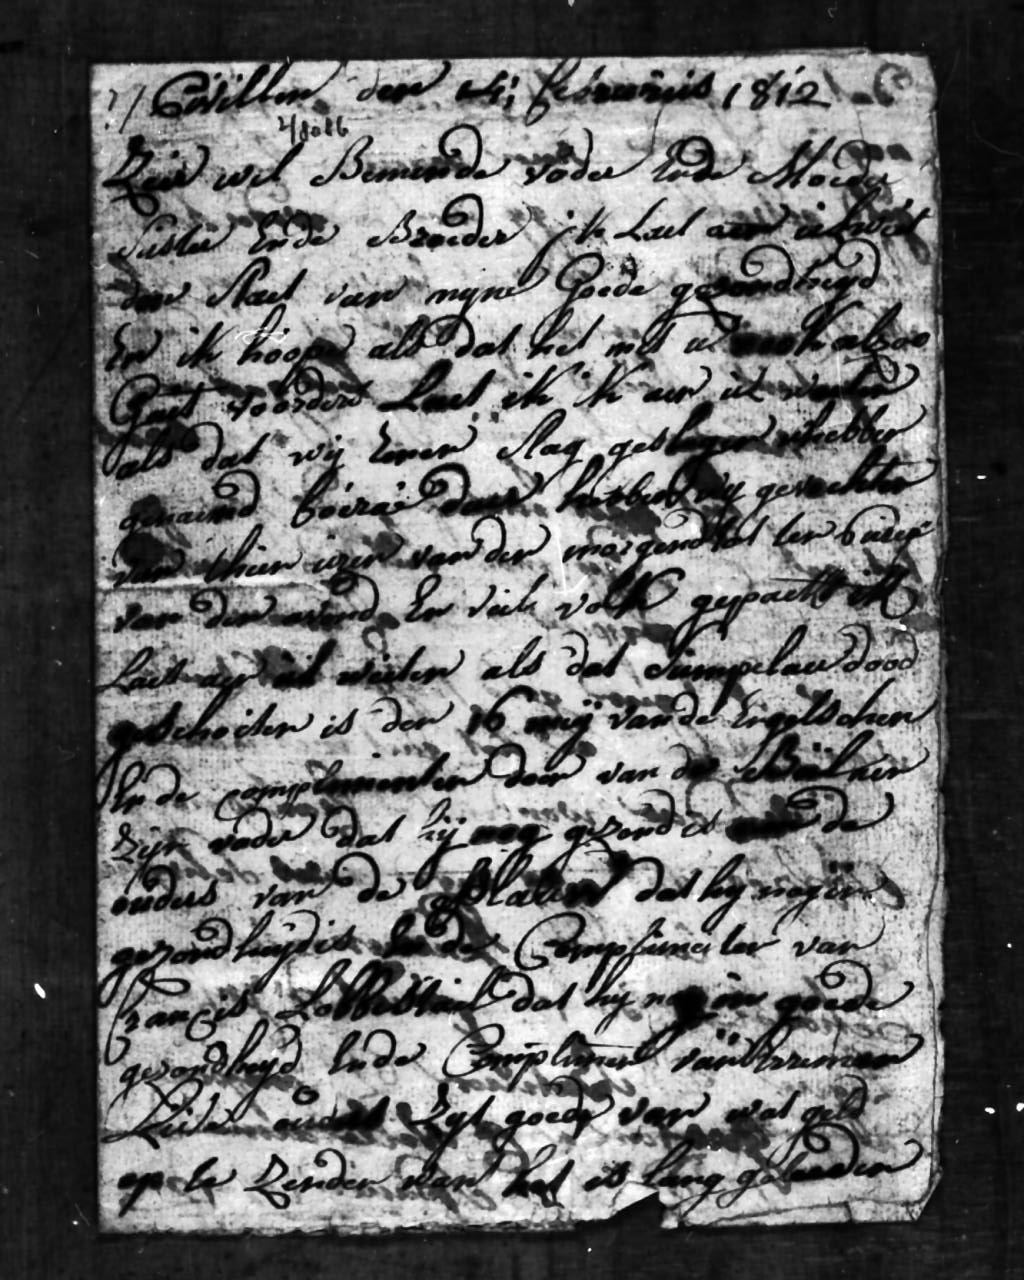 Civillen den 14 februaris 1812
48086
Zeer wel Beminde vader Ende Moeder
suster Ende Broeder ik Laet aen u weet
den staet van myne Goede gezondheyd
En ik hoope als dat het met u ook alzoo
Gaet voorders Laet ik ik aen ul weeten
als dat wij Eenen slag geslagen hebben
genaemd daer hebben wij gevochten
van thien uren van den morgend tot ten 6 uren
van den avond En veele volk gepackt ik
Laet aen ul weeten als dat dood
geschoeten is den 16 meij van de Engelschen
Ende complimenten door van de
zijn vader dat hij nog gezond is aen de
ouders van de dat hij nog in
gezondheijd is Ende Complimenten van
francis dat hij nog in goede
gezondheijd Ende Compliment van
ouders Zyt goede van wat geld
op te Zenden want het is lang geleeden